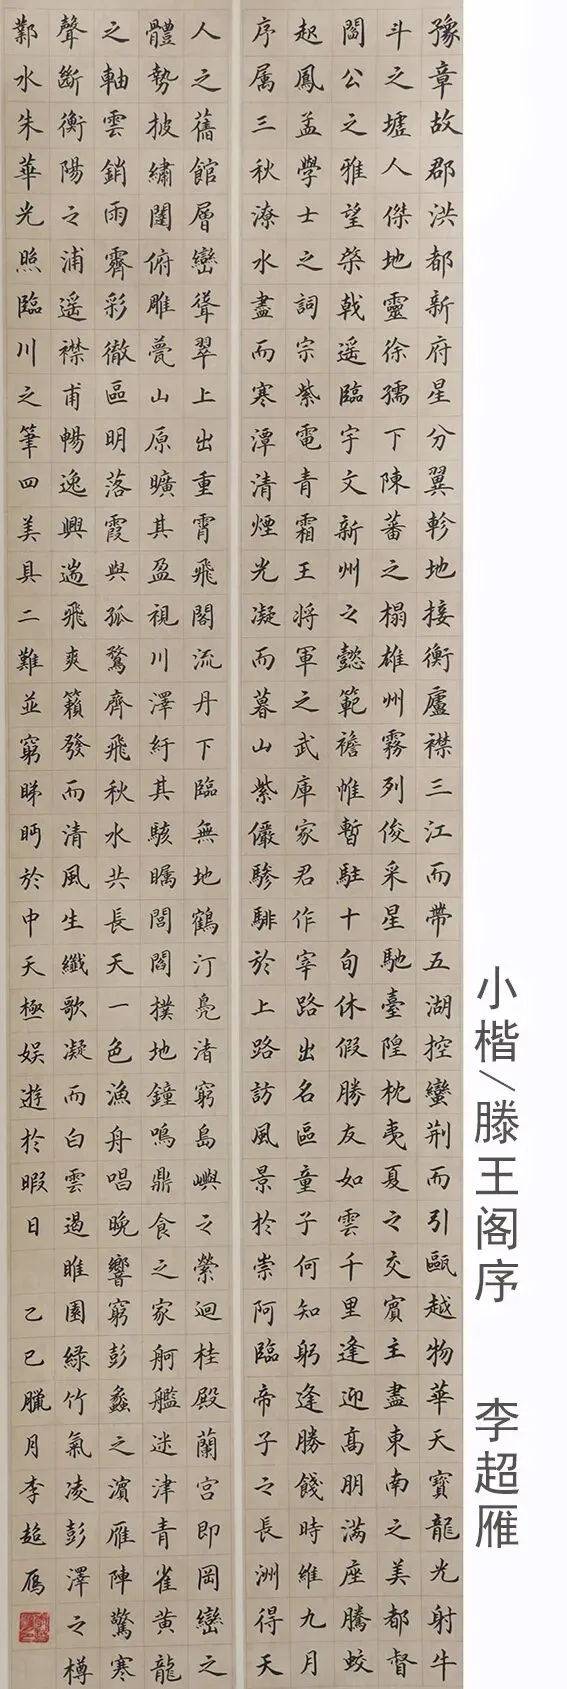 豫章故郡洪都新府星分翼軫地接衡廬襟三江而帶五湖控蠻荆而引甌越物華天寶龍光射牛
斗之墟人傑地靈徐孺下陳蕃之榻雄州霧列俊采星馳臺隍枕夷夏之交賓主盡東南之美都督
閻公之雅望棨戟遥臨宇文新州之懿範襜惟暫駐十旬休假勝友如雲千里逢迎髙朋满座騰蛟
起鳳孟學士之詞宗紫電青霜王将軍之武庫家君作宰路出名區童子何知躬逢勝餞時維九月
序属三秋潦水盡而寒潭清煙光凝而暮山紫儼驂騑於上路訪風景於崇阿臨帝子之長洲得天
人之舊館層巒聳翠上出重霄飛閣流丹下臨無地鶴汀鳧渚窮島嶼之縈迴桂殿蘭宫即岡巒之
體勢披繡闥俯雕甍山原曠其盈視川澤紆其駭矚閭閻撲地鐘鳴鼎食之家舸艦迷津青雀黄龍
之軸雲銷雨霽彩徹區明落霞與孤鶩齊飛秋水共長天一色漁舟唱晚響窮彭蠡之濱雁陣驚寒
聲斷衡陽之浦遥襟甫暢逸興遄飛爽籟發而清風生纖歌凝而白雲遏睢園緑竹氣凌彭澤之樽
鄴水朱華光照臨川之筆四美具二難並窮睇眄於中天極娱遊於暇日 乙巳臘月李超雁
小楷/滕王阁序 李超雁